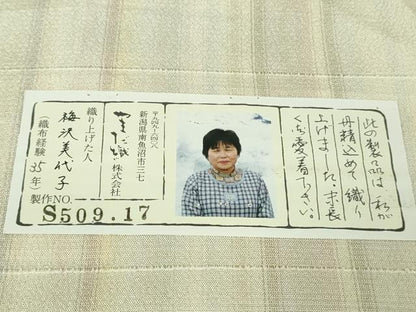 此の製品は私が
丹精込めて織り
上げました。末長
くご愛着下さい。
新潟県南魚沼市三七
やまだ織 株式会社
織り上げた人
梅沢美代子
(織布経験35年)
製作NO.
S509.17